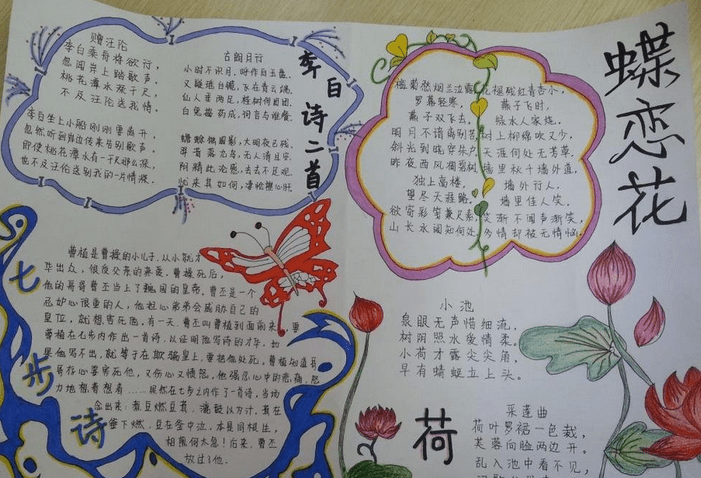 赠汪伦
李白乘舟将欲行，
忽闻岸上踏歌声。
桃花潭水深千尺，
不及汪伦送我情。
李白坐上小船刚刚要离开，
忽然听到岸边传来告别歌声。
即使桃花潭水有一千尺那么深，
也不及汪伦送别我的一片情深。
古朗月行
小时不识月，呼作白玉盘。
又疑瑶台镜，飞在青云端。
仙人垂两足，桂树何团团。
白兔捣药成，问言与谁餐。
蟾蜍蚀圆影，大明夜已残。
羿昔落九乌，天人清且安。
阴精此沦惑，去去不足观。
忧来其如何，凄怆摧心肝
李白诗二首
槛菊愁烟兰泣露
罗幕轻寒，
燕子双飞去。
明月不谙离别苦
斜光到晓穿朱户
昨夜西风凋碧树
独上高楼，
望尽天涯路。
欲寄彩笺兼尺素
山长水阔知何处
花褪残红青杏小，
燕子飞时，
绿水人家绕。
枝上柳绵吹又少，
天涯何处无芳草。
墙里秋千墙外道，
墙外行人，
墙里佳人笑，
笑渐不闻声渐笑，
多情却被无情恼
蝶恋花
七步诗
曹植是曹操的小儿子，从小就才
华出众，很受父亲的亲爱，曹操死后，
他的哥哥曹丕当上了魏国的皇帝，曹丕是一个
忌妒心很重的人，他担心弟弟会威胁自己的
皇位，就想害死他。有一天，曹丕叫曹植到面前来，要
曹植在七步内作出一首诗，以证明他写诗的才华，如
果他写不出，就等于在欺骗皇上，要把他处死，曹植知道哥
哥存心要害死他，又伤心又愤怒，他强忍心中的悲痛，努
力地想着想着……既然在七步之内作了一首诗，当场
念出来：煮豆燃豆萁，漉豉以为汁，萁在
釜下燃，豆在釜中泣，本是同根生，
相煎何太急！后来，曹丕
放过了他。
小池
泉眼无声惜细流，
树阴照水爱情柔。
小荷才露尖尖角，
早有蜻蜓立上头。
荷
采莲曲
荷叶罗裙一色裁，
芙蓉向脸两边开。
乱入池中看不见，